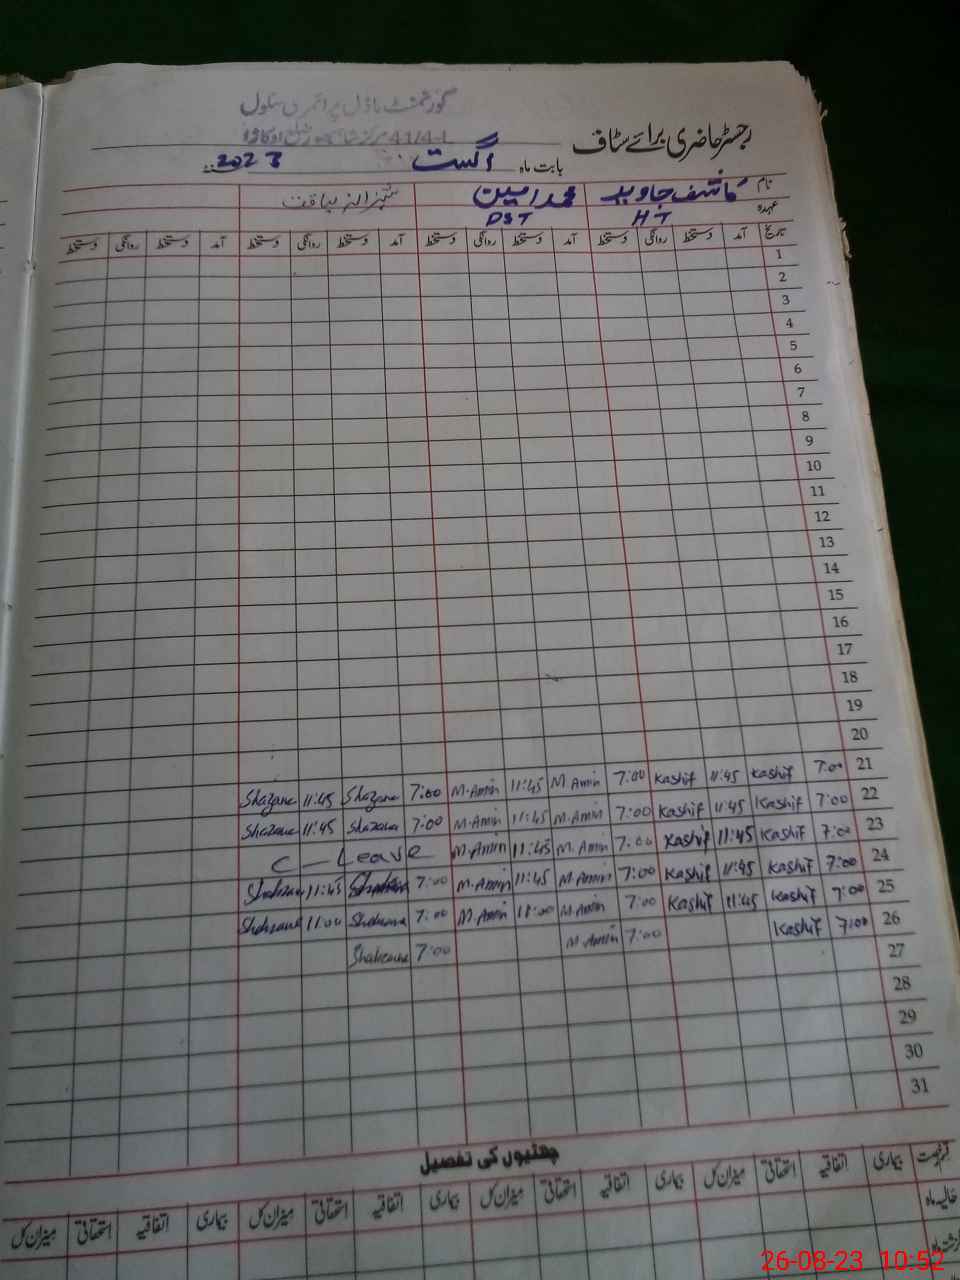 گورنمنٹ ماڈل پرائمری سکول
رجسٹر حاضری برائے سٹاف
بابت ماہ اگست 2023
نام کاشف جاوید محمد امین
عہدہ HT DST
تاریخ آمد دستخط روانگی دستخط آمد دستخط روانگی دستخط آمد دستخط روانگی دستخط آمد دستخط روانگی دستخط
1
2
3
4
5
6
7
8
9
10
11
12
13
14
15
16
17
18
19
20
21 7:00 Kashif 11:45 Kashif 7:00 M.Amin 11:45 M.Amin 7:00 Shazana 11:45 Shazana
22 7:00 Kashif 11:45 Kashif 7:00 M.Amin 11:45 M.Amin 7:00 Shazana 11:45 Shazana
23 7:00 Kashif 11:45 Kashif 7:00 M.Amin 11:45 M.Amin C - Leave
24 7:00 Kashif 11:45 Kashif 7:00 M.Amin 11:45 M.Amin 7:00 11:45
25 7:00 Kashif 11:45 Kashif 7:00 M.Amin 11:00 M.Amin 7:00 11:00
26 7:00 Kashif 7:00 M.Amin 7:00
27
28
29
30
31
چھٹیوں کی تفصیل
بیماری اتفاقیہ استحقاقی میزان کل بیماری اتفاقیہ استحقاقی میزان کل بیماری اتفاقیہ استحقاقی میزان کل بیماری اتفاقیہ استحقاقی میزان کل
حالیہ ماہ
26-08-23 10:52